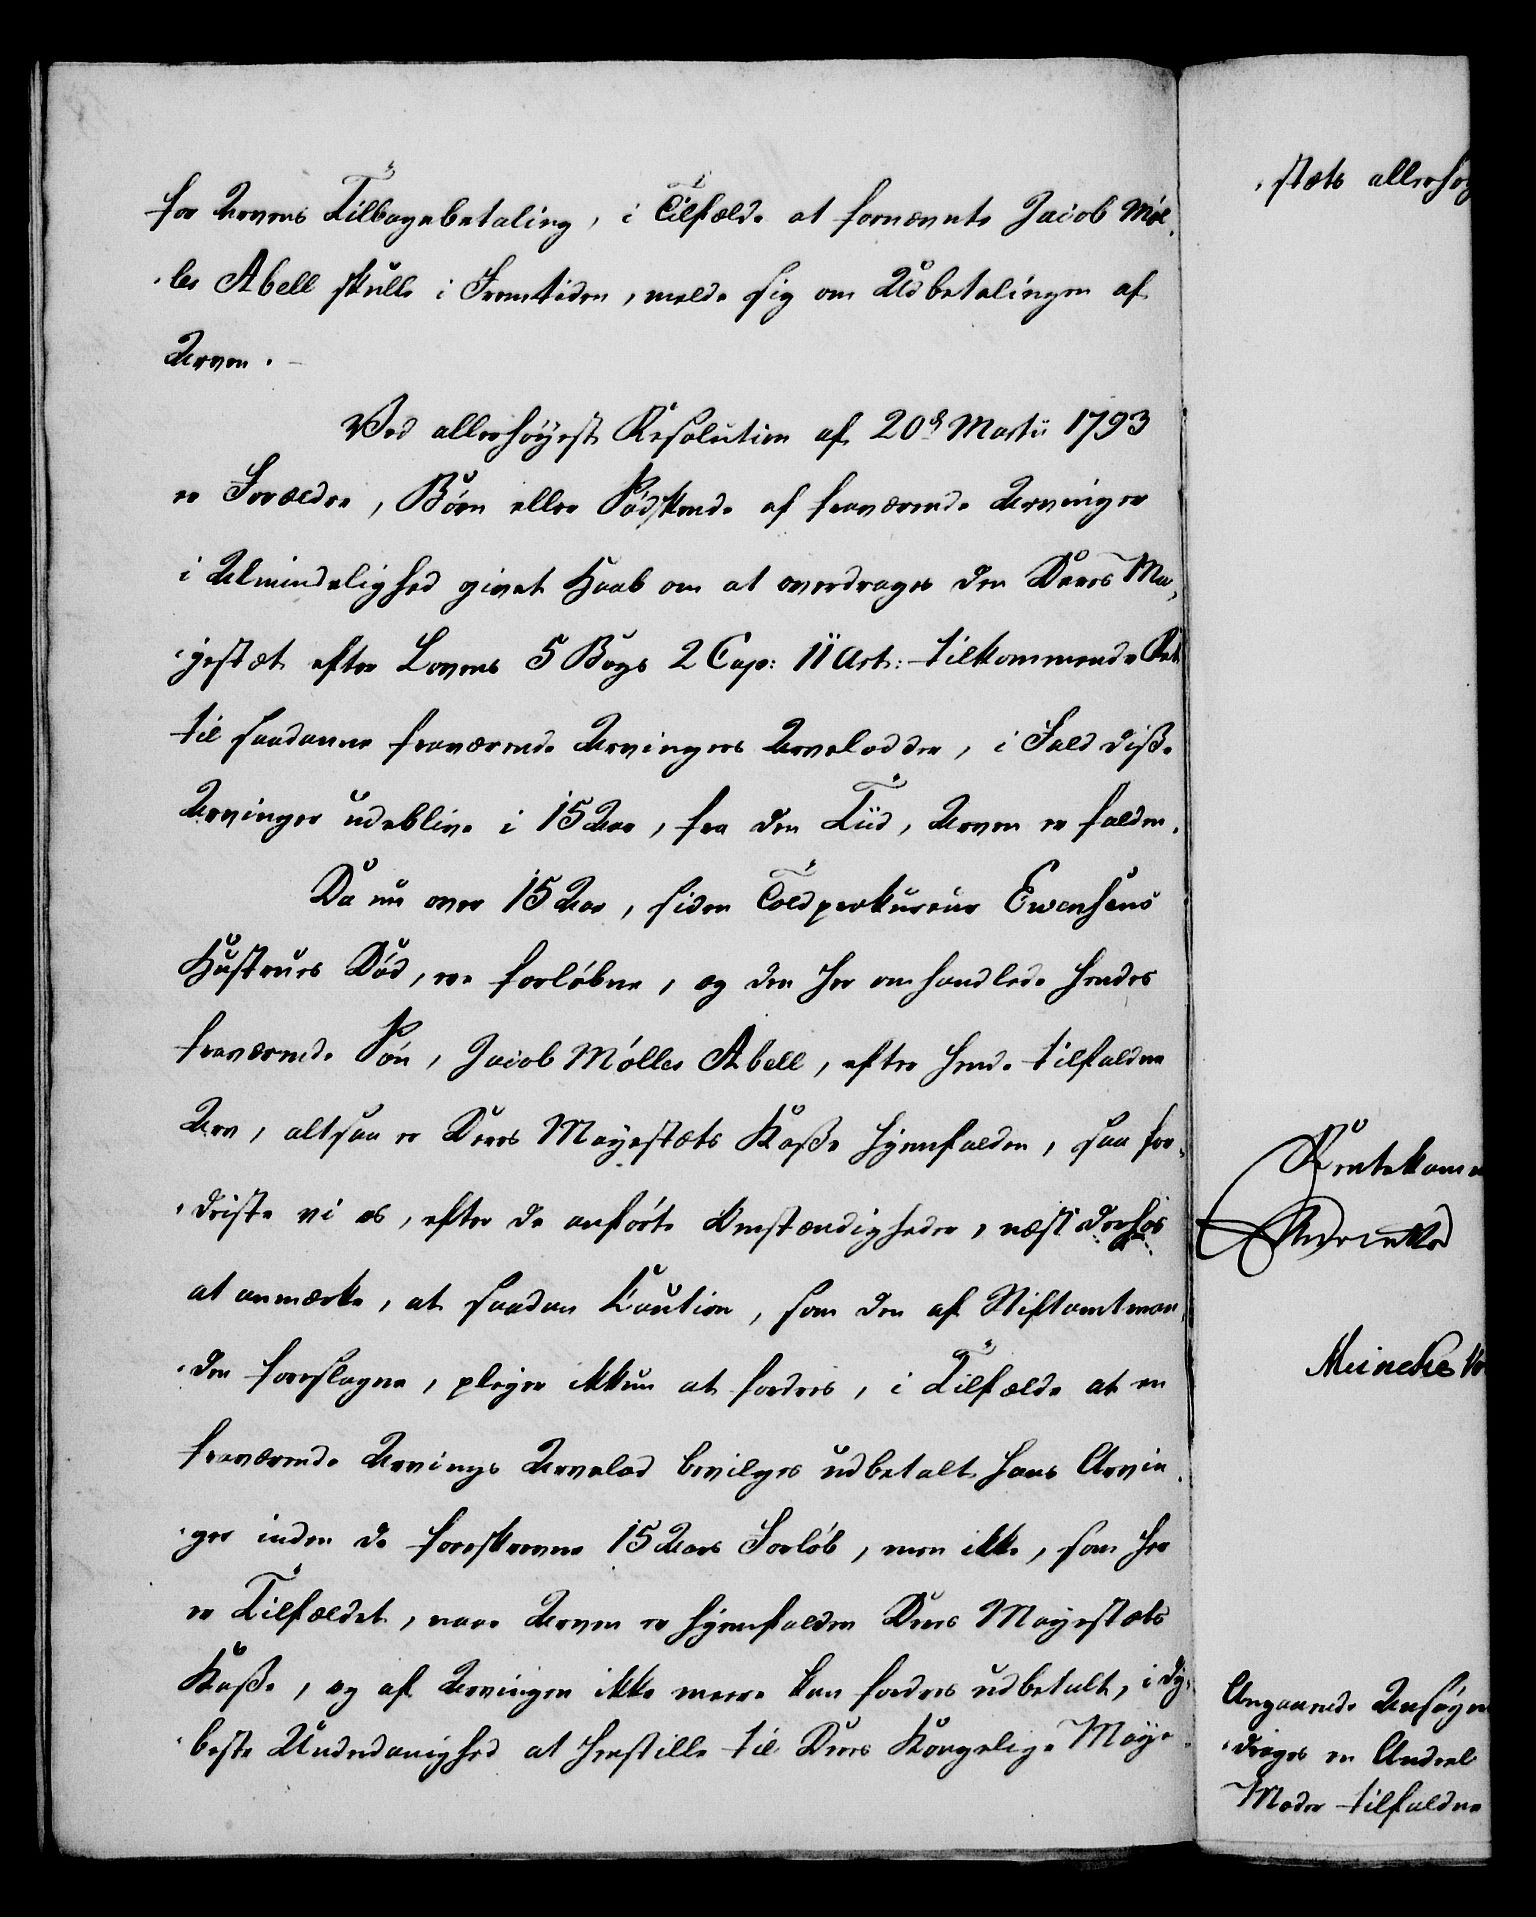 for Arvens Tilbagebetaling, i Tilfælde at fornævnte Jacob Møl-
-ler Abell skulle i Fremtiden, melde sig om Udbetalingen af
Arven. -
Ved allerhøyeste Resolution af 20de Martii 1793
er Forældre, Børn eller Sødskende af fraværende Arvinger
i Almindelighed givet Haab om at overdrages den Deres Ma-
-jestæt efter Lovens 5 Bogs 2 Cap: 11 Art: tilkommende Ret
til saadanne fraværende Arvingers Arvelodder, i Fald disse
Arvinger udeblive i 15 Aar, fra den Tiid, Arven er falden.
Da nu over 15 Aar, siden Toldprokureur Ewensens
Hustrues Død, ere forløbne, og den her omhandlede hendes
fraværende Søn, Jacob Møller Abell, efter hende tilfaldne
Arv, altsaa er Deres Mayestæts Kasse hjemfalden, saa for-
-driste vi os, efter de anførte Omstændigheder, næst derhos
at anmærke, at saadan Kaution, som den af Stiftamtman-
-den foreslagne, pleyer ikkun at fordres, i Tilfælde at en
fraværende Arvings Arvelod bevilges udbetalt hans Arvin-
-ger inden de foreskrevne 15 Aars Forløb, men ikke, som her
er Tilfældet, naar Arven er hjemfalden Deres Mayestæts
Kasse, og af Arvingen ikke meere kan fordres udbetalt, i dy-
-beste Underdanighed at henstille til Deres Kongelige Maye-
-stæts allerhøy
Rentekam
Meincke
Angaaende Ansøgn
-drages en Andeel
Moder tilfaldne